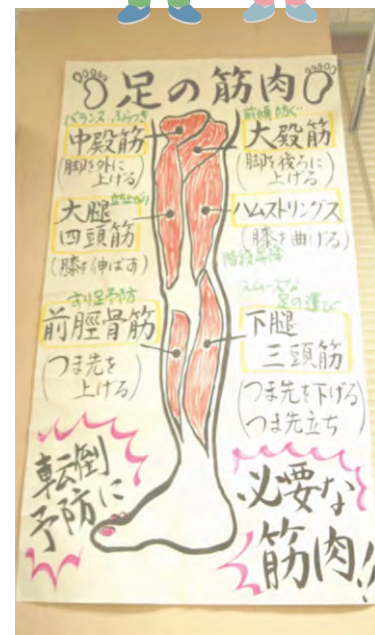 足の筋肉
バランス ふらつき
中殿筋
(脚を外に
上げる)
前傾防ぐ
大殿筋
(脚を後ろに
上げる)
立ち上がり
大腿
四頭筋
(膝を伸ばす)
ハムストリングス
(膝を曲げる)
階段昇降
すり足予防
前脛骨筋
(つま先を
上げる)
スムーズな
足の運び
下腿
三頭筋
(つま先を下げる)
(つま先立ち)
転倒
予防に
必要な
筋肉!!